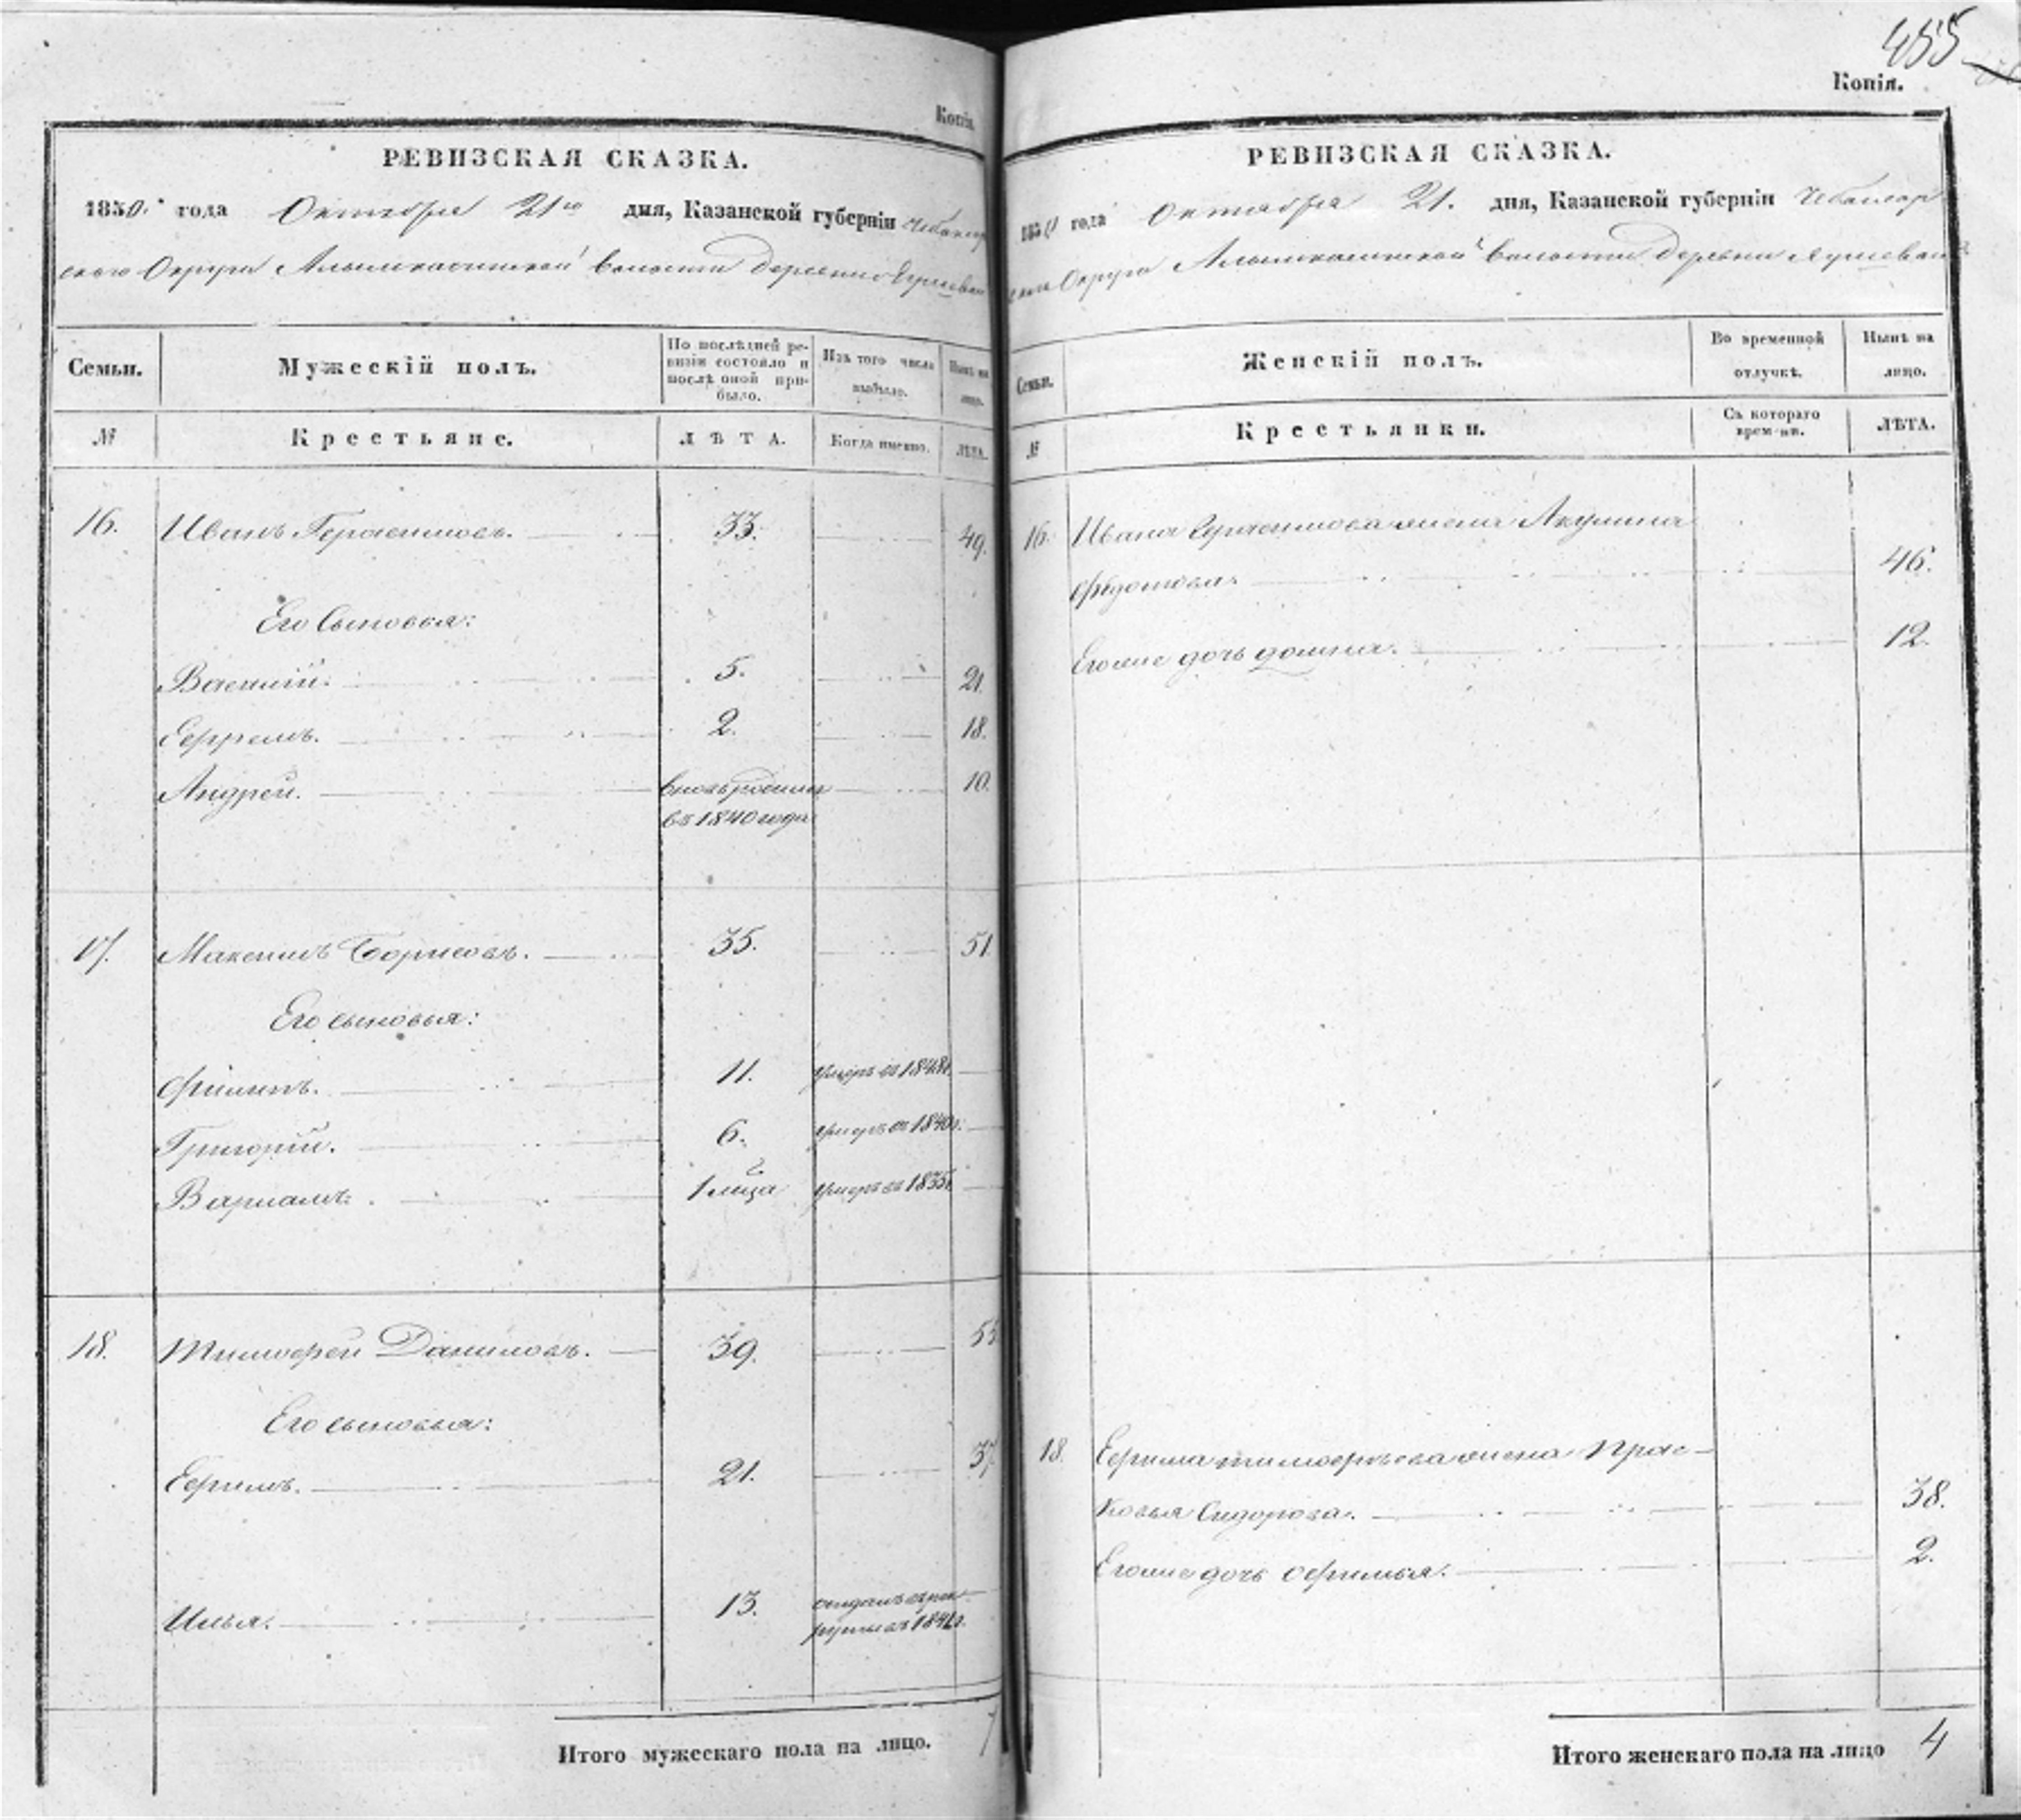 Копія.
РЕВИЗСКАЯ СКАЗКА.
1850. года Октября 21го дня, Казанской губерніи Чебоксар
скаго Округа Алымкасинской волости деревни Яушево
Семьи.
Мужескій полъ.
По послѣдней ре-
визіи состояло и
послѣ оной при-
было.
Изъ того числа
выбыло.
Нынѣ на
лицо.
№
Крестьяне.
ЛѢТА.
Когда именно.
ЛѢТА.
16. Иванъ Герасимовъ. 33. 49.
Его Сыновья:
Василій. 5. 21.
Ефремъ. 2. 18.
Андрей. вновь рожден 10.
въ 1840 году
17. Максимъ Борисовъ. 35. 51.
Его сыновья:
Филипъ. 11. умеръ въ 1848г.
Григорій. 6. умеръ въ 1840г.
Варламъ. 1 мца умеръ въ 1835г.
18. Тимофей Даниловъ. 39. 55
Его сыновья:
Ефимъ. 21. 37.
Илья. 13. отданъ въ ре
круты въ 184 г.
Итого мужескаго пола на лицо. 7
455
Копія.
РЕВИЗСКАЯ СКАЗКА.
1850 года Октября 21. дня, Казанской губерніи Чебоксар
скаго Округа Алымкасинской волости деревни Яушево
Семьи.
Женскій полъ.
Во временной
отлучкѣ.
Нынѣ на
лицо.
№
Крестьянки.
Съ котораго
времени.
ЛѢТА.
16. Ивана Герасимова жена Акулина
Федотова. 46.
Его же дочь Домна. 12.
18. Ефима Тимофѣева жена Прас-
ковья Сидорова. 38.
Его же дочь Офимья. 2.
Итого женскаго пола на лицо 4